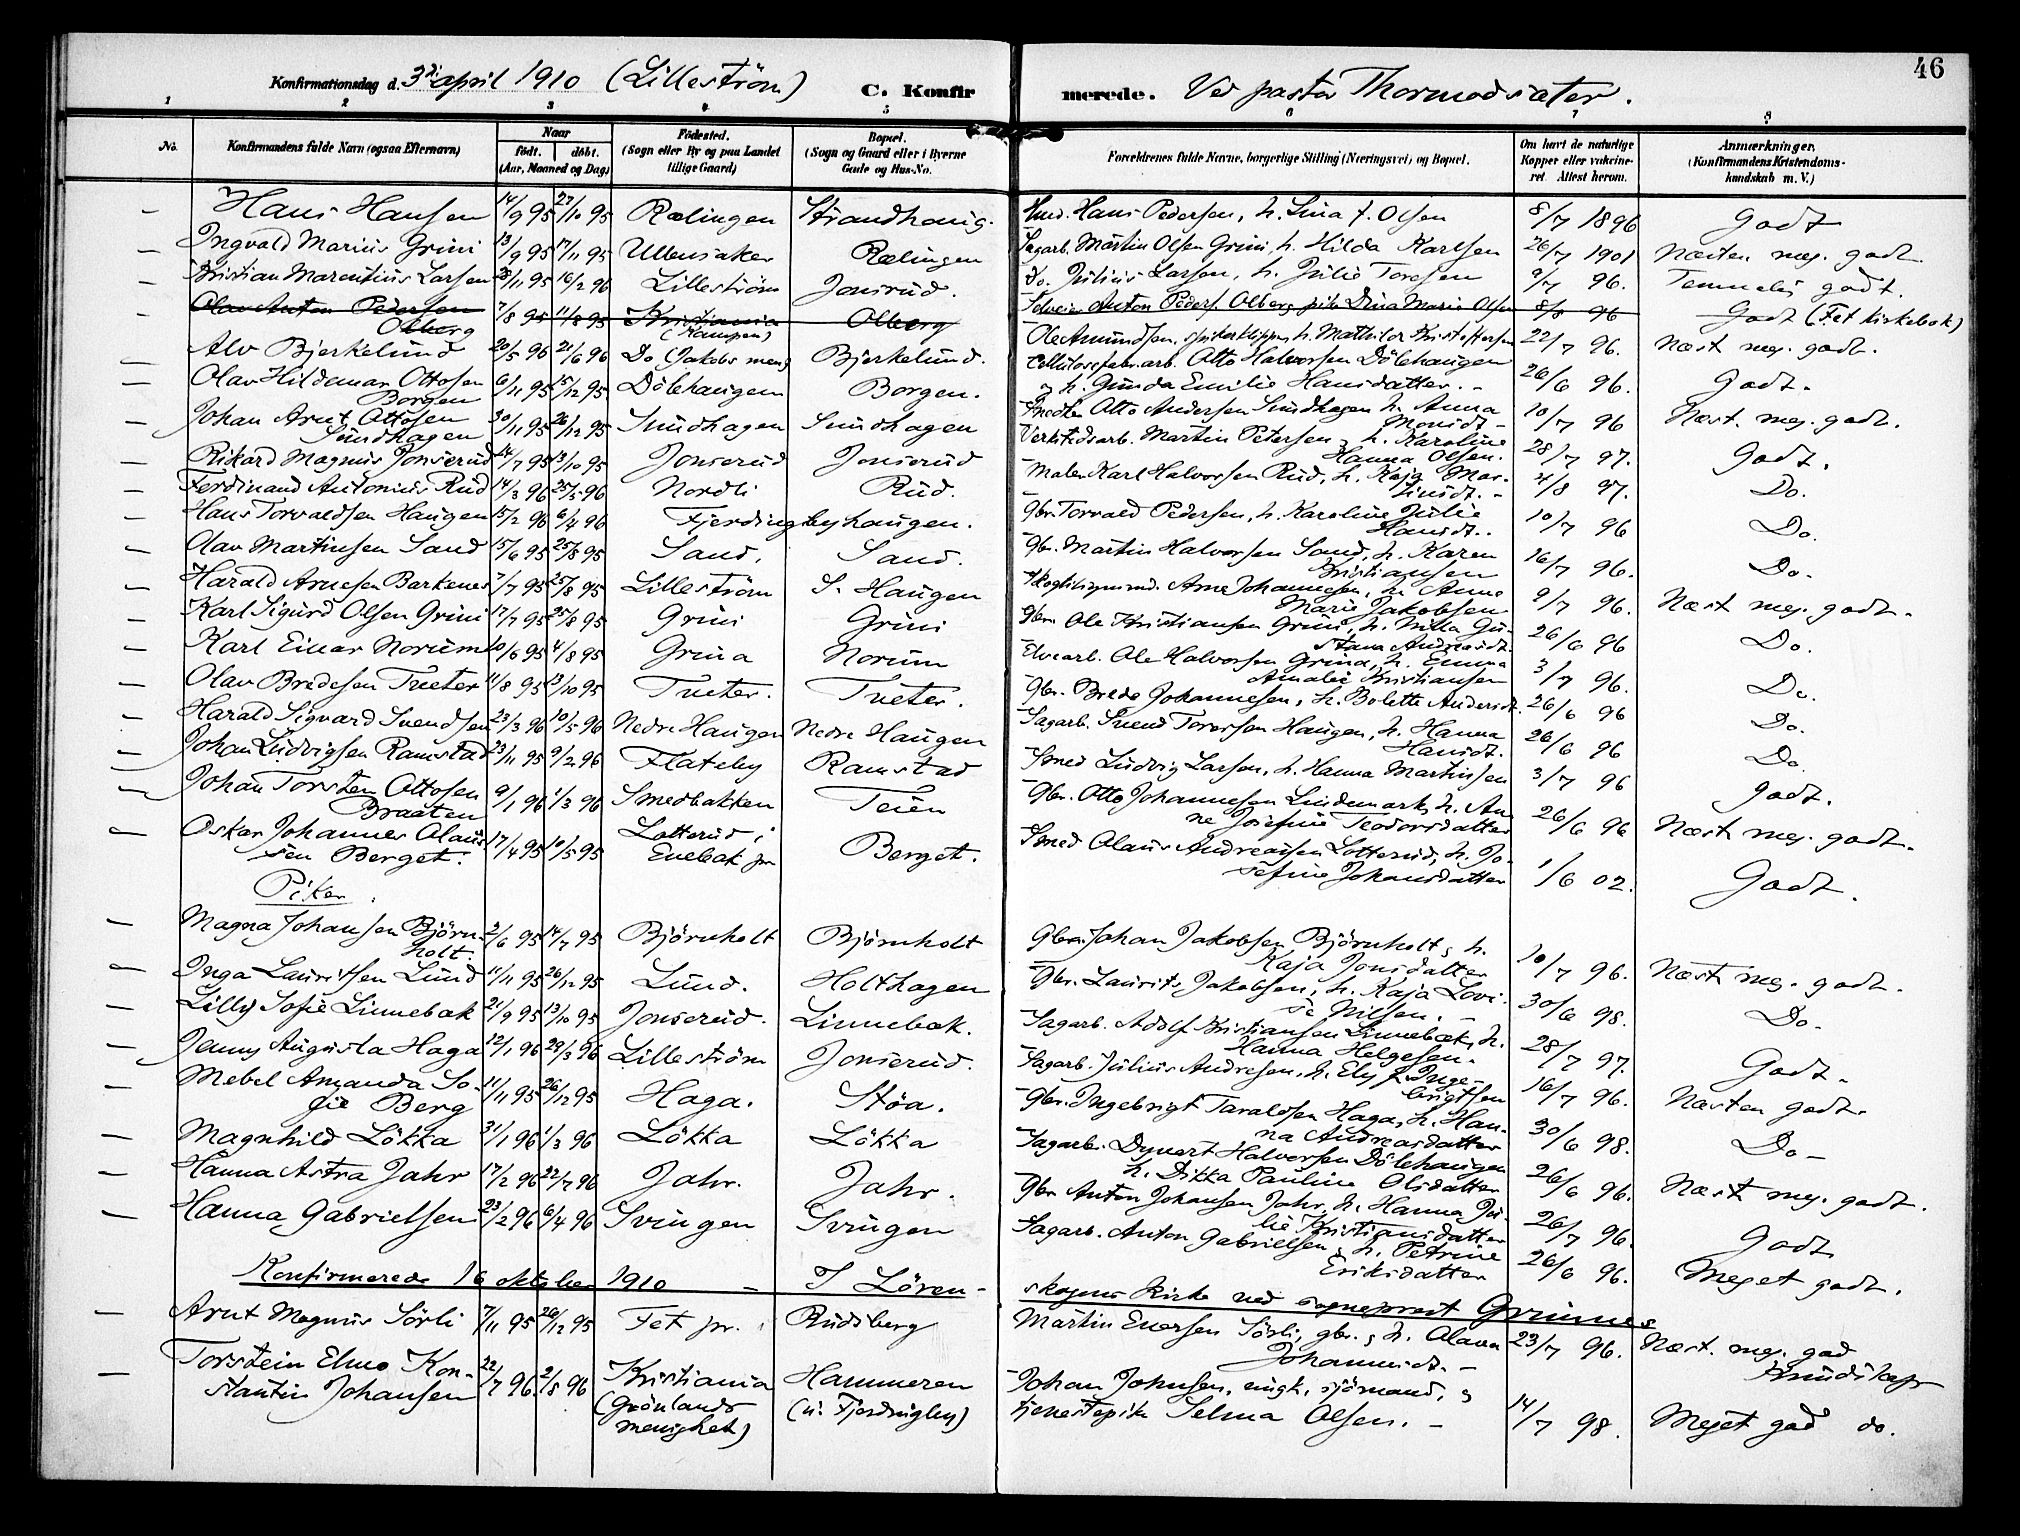 46
Konfirmationsdag d. 3di april 1910 (Lilleström) C. Konfirmerede. Ved pastor Thormodsæter.
1 2 3 4 5 6 7 8
No. Konfirmandens fulde Navn (ogsaa Efternavn) Naar født. døbt. (Aar, Maaned og Dag) Fødested. (Sogn eller By og paa Landet tillige Gaard) Bopæl. (Sogn og Gaard eller i Byerne Gade og Hus-No. Forældrenes fulde Navne, borgerlige Stilling (Næringsvei) og Bopæl. Om havt de naturlige Kopper eller vakcineret. Attest herom. Anmærkninger. (Konfirmandens Kristendomskundskab m. V.)
— Hans Hansen 14/9 95 27/10 95 Rælingen Strandhaug. Hans Pedersen, h. Lina f. Olsen 8/7 1896 Godt
— Ingvald Marius Grini 13/9 95 17/11 95 Ullensaker Rælingen Sagarb. Martin Olsen Grini, h. Hilda Karlsen 26/7 1901 Næsten meg. godt
— Kristian Marentius Larsen 28/11 95 16/2 96 Lilleström Jonsrud. Do. Julius Larsen, h. Julie Toresen 9/7 96. Temmelig godt.
Olav Anton Pedersen Olberg 7/8 95 11/8 95 Kristiania (Kampen) Olberg Anton Peders. Olberg, pike Dina Marie Olsen 8/8 96 Godt (Fet kirkebok)
— Alv Bjerkelund 20/5 96 21/6 96 Do (Jakobs men) Bjerkelund. Ole Amundsen, spikerklipper, h. Mathilde Kristoffersen 22/7 96. Næst meg. godt.
— Olav Hildemar Ottosen Borgen 6/11 95 15/12 95 Dölehaugen Borgen. Cellulosefabr.arb. Otto Halvorsen Dölehaugen og h. Gunda Emilie Hansdatter. 26/6 96. Godt.
— Johan Arnt Ottosen Sundhagen 30/11 95 26/12 95 Sundhagen Sundhagen Otto Andersen Sundhagen h. Anna Monsdt. 10/7 96 Næst. meg. godt.
— Rikard Magnus Jonserud 14/7 95 13/10 95 Jonserud Jonserud Verkstedsarb. Martin Petersen, h. Karoline Hanna Olsen. 28/7 97. Godt.
— Ferdinand Antonius Rud 14/3 96 25/5 96 Nordli Rud. Maler Karl Halvorsen Rud, h. Kaja Martinsdt. 4/8 97. Do.
— Hans Torvaldsen Haugen 15/2 96 6/4 96 Fjerdingbyhaugen. Gbr. Torvald Pedersen, h. Karoline Julie Hansdt. 10/7 96 Do.
— Olav Martinsen Sand 15/6 95 25/8 95 Sand. Sand. Gbr. Martin Halvorsen Sand, h. Karen Kristiansen 16/7 96. Do.
— Harald Arnesen Barkenes 7/7 95 25/8 95 Lilleström S. Haugen Arne Johannesen, h. Anne Marie Jakobsen 9/7 96. Næst meg. godt.
— Karl Sigurd Olsen Grini 17/7 95 25/8 95 Grini Grini Gbr. Ole Kristiansen Grini, h. Milla Gustava Andreasdt. 26/6 96 Do.
— Karl Einar Norum 10/6 95 4/8 95 Grina Norum Elvearb. Ole Halvorsen Grina, h. Emma Amalie Kristiansen 3/7 96. Do.
— Olav Bredesen Tveter 11/8 95 13/10 95 Tveter. Tveter. Gbr. Brede Johannesen, h. Bolette Andersdt. 26/6 96 Do.
— Harald Sigvard Svendsen 23/3 96 10/5 96 Nedre Haugen Nedre Haugen Sagarb. Svend Torersen Haugen, h. Hanna Hansdt. 26/6 96 Do.
— Johan Ludvigsen Ramstad 23/11 95 9/2 96 Flateby Ramstad Smed Ludvig Larsen, h. Hanna Martinsen 3/7 96 Godt.
— Johan Torsten Ottosen Braaten 9/1 96 1/3 96 Smedbakken Teien Gbr. Otto Johannesen Lindemark, h. Anne Josefine Teodorsdatter 26/6 96 Næst meg. godt.
— Oskar Johannes Olaussen Berget. 17/4 95 10/5 95 Lotterud i Enebak pr Berget. Smed Olaus Andreassen Lotterud, h. Josefine Johansdatter 1/6 02. Godt.
Piker.
— Magna Johansen Björnholt. 2/6 95 14/7 95 Björnholt Björnholt Gbr. Johan Jakobsen Björnholt, h. Kaja Jonsdatter 10/7 96. Næst meg. godt.
— Inga Lauritsen Lund 11/11 95 26/12 95 Lund. Holthagen Gbr. Laurits Jakobsen, h. Kaja Lovise Nilsen. 30/6 98. Do.
— Lilly Sofie Linnebak 21/9 95 13/10 95 Jonserud. Linnebak. Sagarb. Adolf Kristiansen Linnebæk, h. Hanna Helgesen. 28/7 97. Godt.
— Jenny Augusta Haga 12/1 96 29/3 96 Lilleström Jonserud. Sagarb. Julius Andresen, h. Ely f. Ingebrigtsen 16/7 96. Næsten godt.
— Mebel Amanda Sofie Berg 11/11 95 26/12 95 Haga. Stöa. Gbr. Ingebrigt Taraldsen Haga, h. Hanna Andreasdatter 30/6 98. Do —
— Magnhild Lökka 31/1 96 1/3 96 Lökka Lökka Sagarb. Dyvert Halvorsen Dölehaugen h. Dikka Pauline Olsdatter 26/6 96. Næst meg. godt.
— Hanna Astra Jahr 17/2 96 22/7 96 Jahr. Jahr. Gbr Anton Johansen Jahr, h. Hanna Julie Kristiansdatter 26/7 96. Godt
— Hanna Gabrielsen 23/2 96 6/4 96 Svingen Svingen Sagarb. Anton Gabrielsen, h. Petrine Eriksdatter 26/6 96. Meget godt.
Konfirmerede 16 oktober 1910 — I Lörenskogens kirke ved sogneprest Grimnes
— Arnt Magnus Sörli 7/11 95 26/12 95 Fet pr. Rudsberg Martin Evensen Sörli, gbr., h. Olava Johannesdt. 23/7 96. Næst. meg. god kundskap
— Torstein Elmo Konstantin Johansen 22/7 96 2/8 96 Kristiania (Grönlands menighet) Hammeren (u. Fjerdingby) Johan Johnsen, ungk., sjömand, og tjenestepike Selma Olsen. 14/7 98. Meget god do.